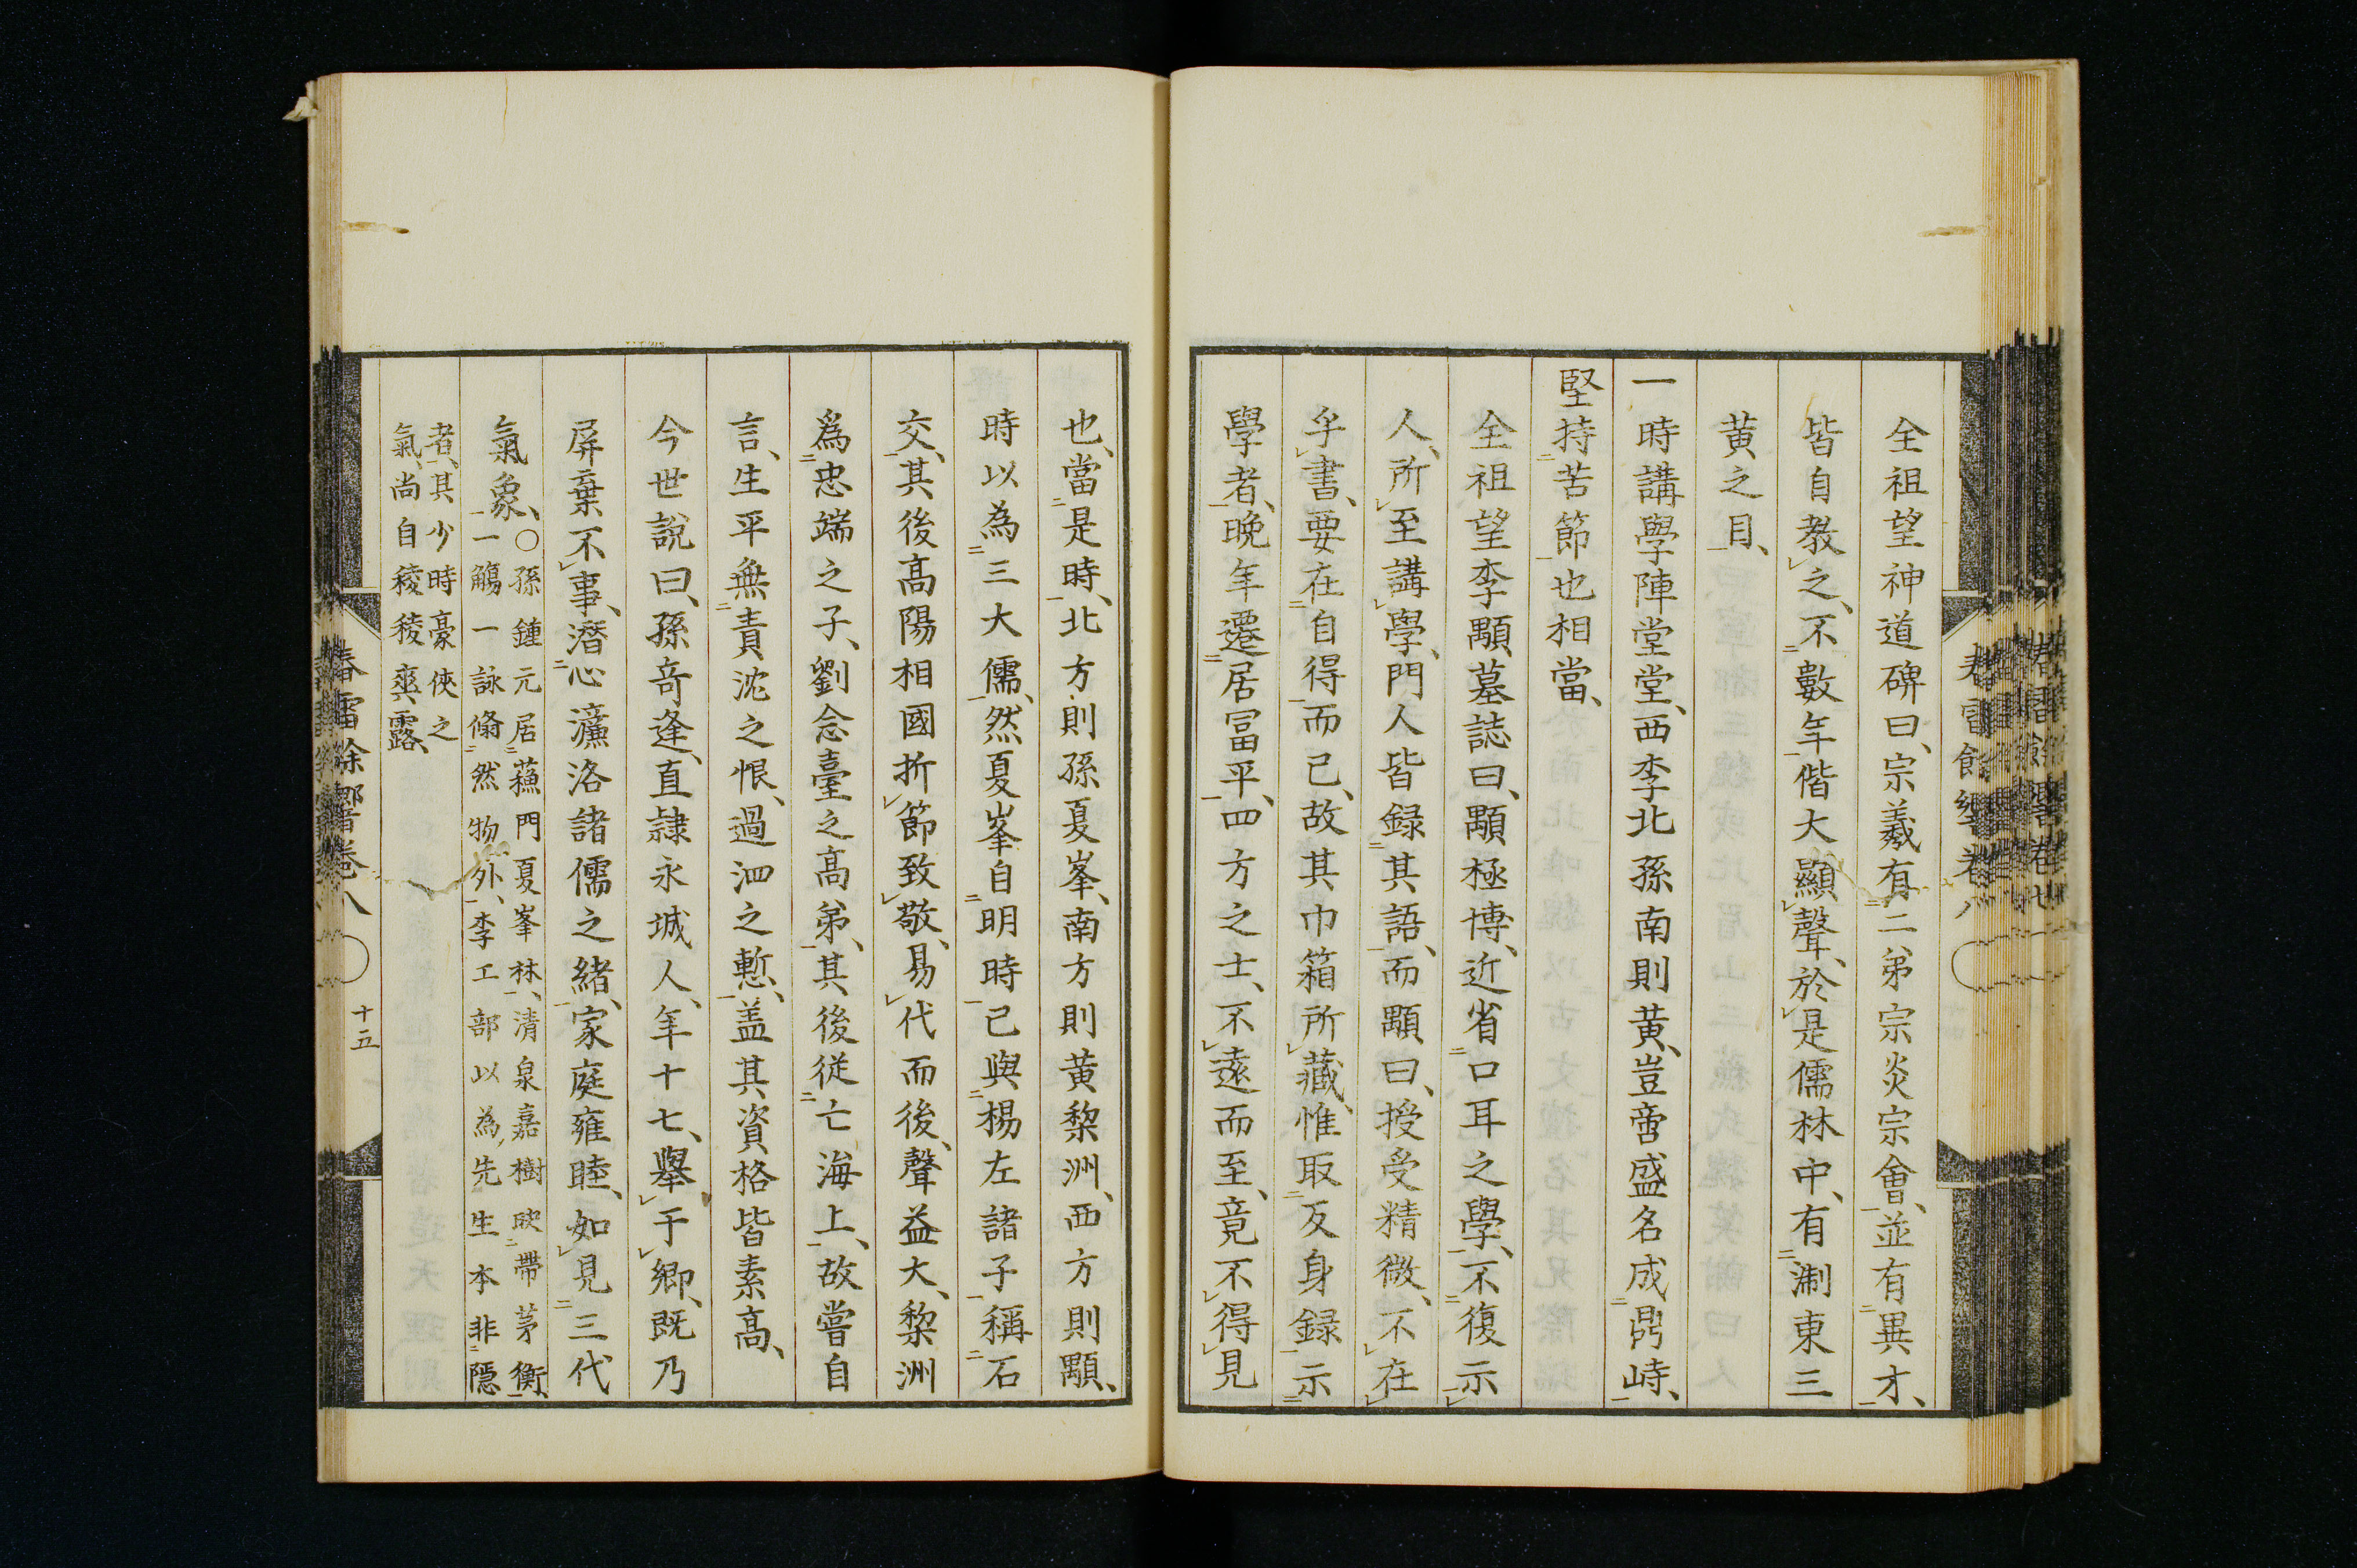 全祖望神道碑曰、宗羲有二弟宗炎宗會、並有異才、
皆自教之、不數年偕大顯聲、於是儒林中、有淛東三
黃之目、
一時講學陣堂堂、西李北孫南則黃、豈啻盛名成鼎峙、
堅持苦節也相當、
全祖望李顒墓誌曰、顒極博、近省口耳之學、不復示
人、所至講學、門人皆録其語、而顒曰、授受精微、不在
乎書、要在自得而已、故其巾箱所藏、惟取反身録示
學者、晚年遷居冨平、四方之士、不遠而至、竟不得見
也、當是時、北方則孫夏峯、南方則黃棃洲、西方則顒、
時以為三大儒、然夏峯自明時已與楊左諸子稱石
交、其後高陽相國折節致敬、易代而後、聲益大、棃洲
為忠端之子、劉念臺之高弟、其後從亡海上、故嘗自
言、生平無責沈之恨、過泗之慙、盖其資格皆素高、
今世說曰、孫竒逢、直隷永城人、年十七、舉于鄉、既乃
屏棄不事、潛心濂洛諸儒之緒、家庭雍睦、如見三代
氣象、○孫鍾元居蘓門夏峯林、清泉嘉樹映帶茅衡、
一觴一詠翛然物外、李工部以為、先生本非隱
者、其少時豪俠之
氣、尚自稜稜爽露、
春雷餘響卷八
十五